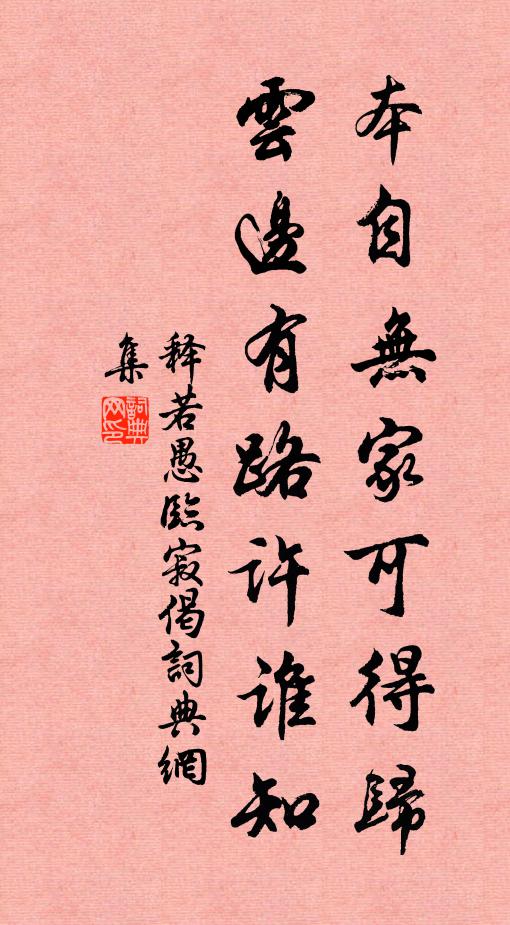 本自無家可得歸
雲邊有路許誰知
释若愚臨寂偈詞典網
集
詞典
网印